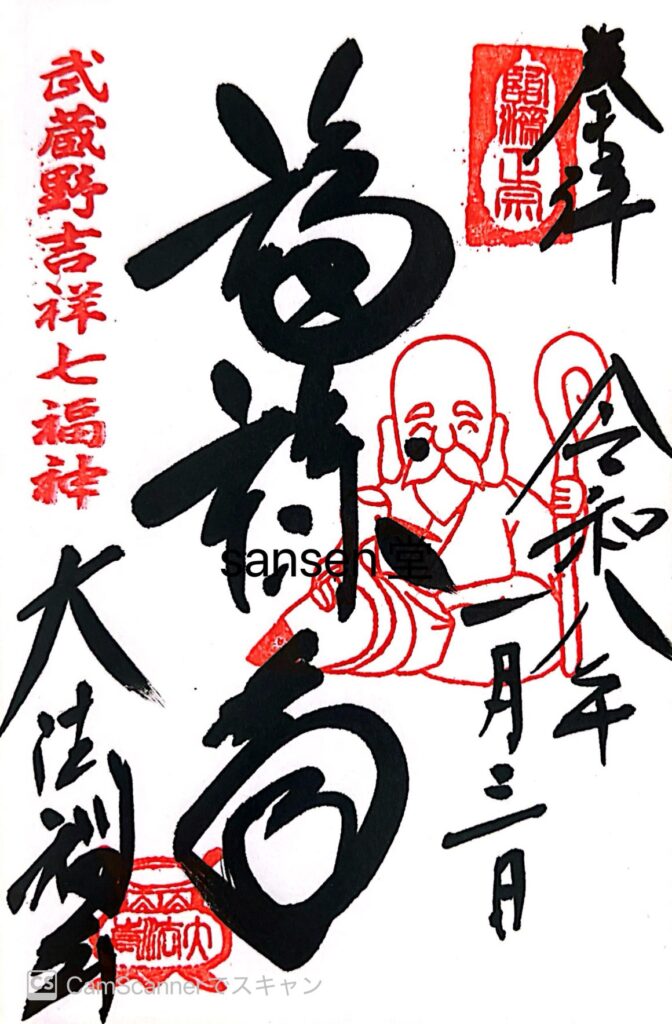 奉拝
臨済正宗
令和八年
一月三日
福禄寿
武蔵野吉祥七福神
大法禅寺
sansen堂
CS CamScannerでスキャン